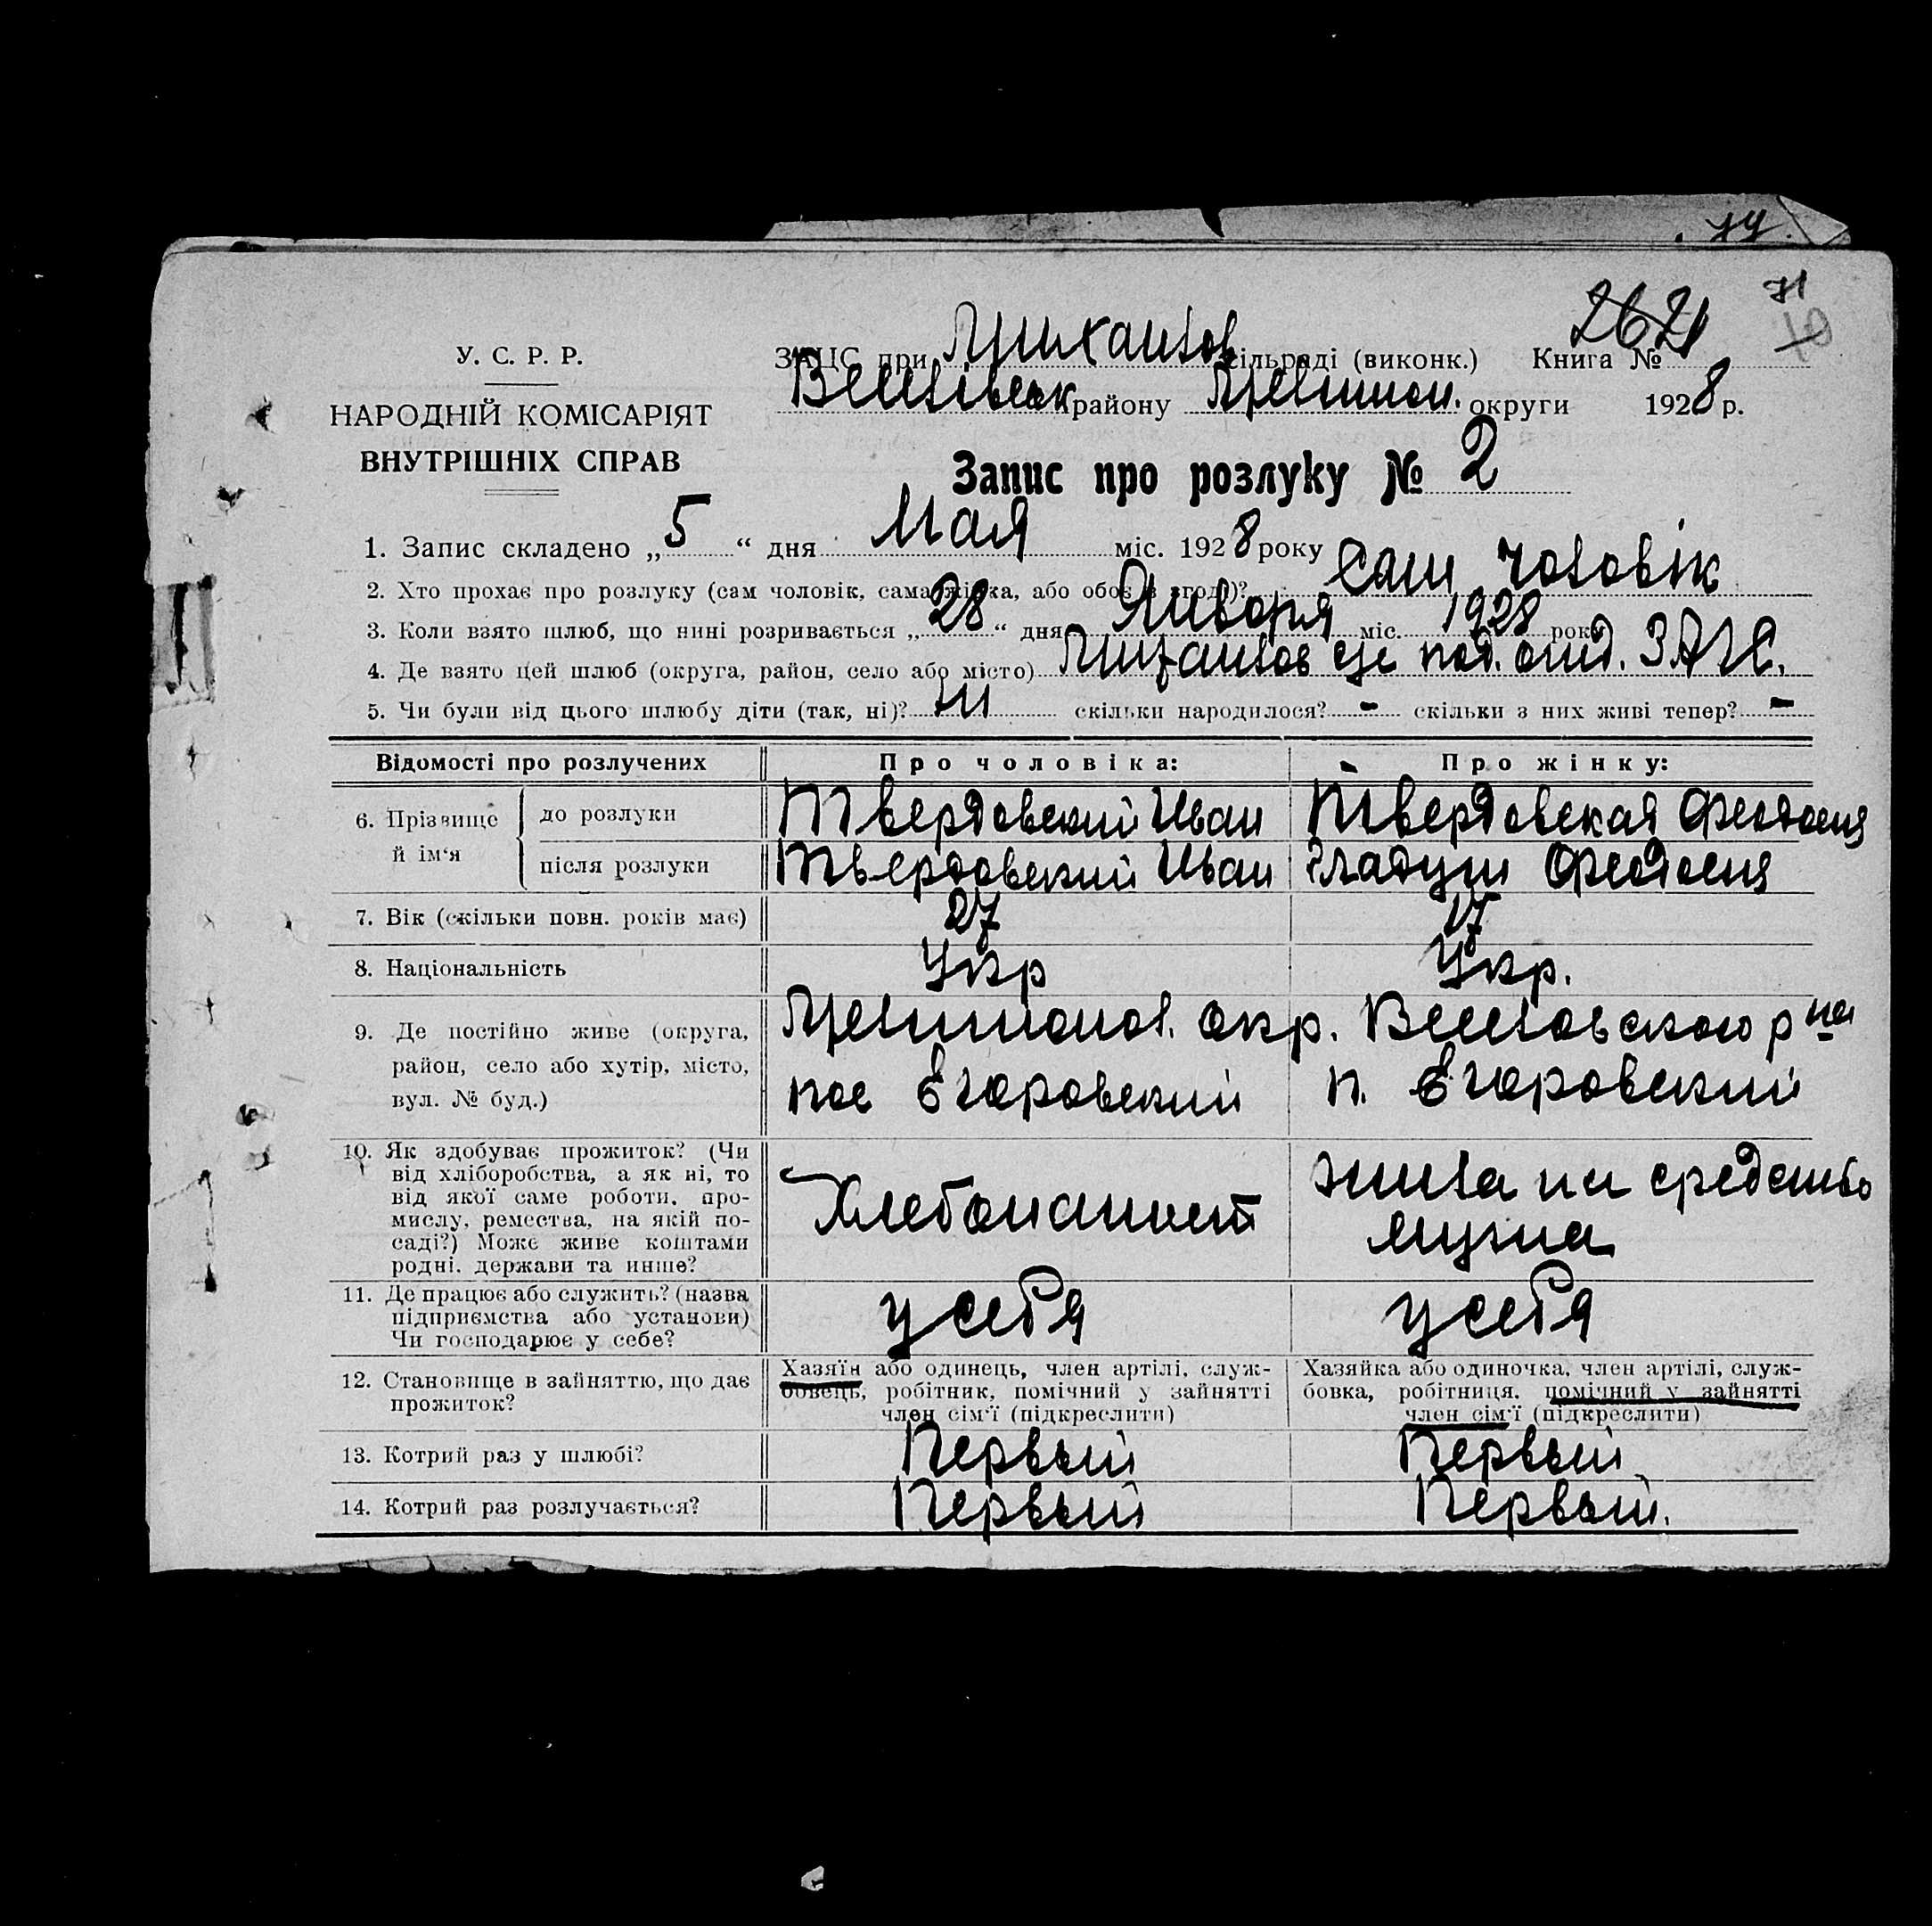 74.
71
70
2621
У. С. Р. Р.
ЗАЦС при Михайлов сільраді (виконк.) Книга №
Веселівськ району Мелитоп. округи 1928 р.
НАРОДНІЙ КОМІСАРІЯТ
ВНУТРІШНІХ СПРАВ
Запис про розлуку № 2
1. Запис складено „5“ дня Мая міс. 1928 року
2. Хто прохає про розлуку (сам чоловік, сама жінка, або обоє в згоді)? Сам чоловік
3. Коли взято шлюб, що нині розривається „28“ дня Января міс. 1928 року
4. Де взято цей шлюб (округа, район, село або місто) ЗАГС.
5. Чи були від цього шлюбу діти (так, ні)? ні скільки народилося? - скільки з них живі тепер? -
Відомості про розлучених Про чоловіка: Про жінку:
6. Прізвище й ім'я до розлуки Твердовский Иван Твердовская Феодосия
після розлуки Твердовский Иван Гладуш Феодосия
7. Вік (скільки повн. років має) 27 17
8. Національність Укр Укр.
9. Де постійно живе (округа, Мелитопол. окр. Веселовского р на
район, село або хутір, місто, пос Егоровский п. Егоровский
вул. № буд.)
10. Як здобуває прожиток? (Чи
від хліборобства, а як ні, то
від якої саме роботи, про-
мислу, ремества, на якій по-
саді?) Може живе коштами
родні, держави та инше?
Хлебопашест
жила на средство
мужа
11. Де працює або служить? (назва
підприємства або установи)
Чи господарює у себе?
у себя у себя
12. Становище в зайняттю, що дає
прожиток?
Хазяїн або одинець, член артілі, служ-
бовець, робітник, помічний у зайнятті
член сім'ї (підкреслити)
Хазяйка або одиночка, член артілі, служ-
бовка, робітниця, помічний у зайнятті
член сім'ї (підкреслити)
13. Котрий раз у шлюбі? Первый Первый
14. Котрий раз розлучається? Первый Первый.